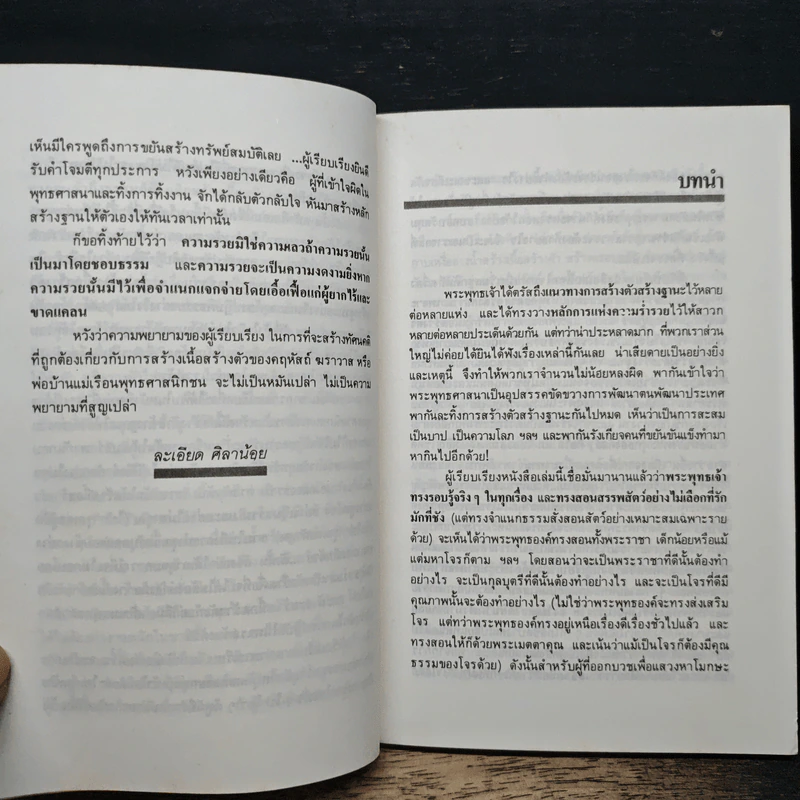 เห็นมีใครพูดถึงการขยันสร้างทรัพย์สมบัติเลย ...ผู้เรียบเรียงยินดี
รับคำโจมตีทุกประการ หวังเพียงอย่างเดียวคือ ผู้ที่เข้าใจผิดใน
พุทธศาสนาและทิ้งการทิ้งงาน จักได้กลับตัวกลับใจ หันมาสร้างหลัก
สร้างฐานให้ตัวเองให้ทันเวลาเท่านั้น
ก็ขอทิ้งท้ายไว้ว่า ความรวยมิใช่ความเลวถ้าความรวยนั้น
เป็นมาโดยชอบธรรม และความรวยจะเป็นความงดงามยิ่งหาก
ความรวยนั้นมีไว้เพื่อจำแนกแจกจ่ายโดยเอื้อเฟื้อแก่ผู้ยากไร้และ
ขาดแคลน
หวังว่าความพยายามของผู้เรียบเรียง ในการที่จะสร้างทัศนคติ
ที่ถูกต้องเกี่ยวกับการสร้างเนื้อสร้างตัวของคฤหัสถ์ ฆราวาส หรือ
พ่อบ้านแม่เรือนพุทธศาสนิกชน จะไม่เป็นหมันเปล่า ไม่เป็นความ
พยายามที่สูญเปล่า
ละเอียด ศิลาน้อย
บทนำ
พระพุทธเจ้าได้ตรัสถึงแนวทางการสร้างตัวสร้างฐานะไว้หลาย
ต่อหลายแห่ง และได้ทรงวางหลักการแห่งความร่ำรวยไว้ให้สาวก
หลายต่อหลายประเด็นด้วยกัน แต่ทว่าน่าประหลาดมาก ที่พวกเราส่วน
ใหญ่ไม่ค่อยได้ยินได้ฟังเรื่องเหล่านี้กันเลย น่าเสียดายเป็นอย่างยิ่ง
และเหตุนี้ จึงทำให้พวกเราจำนวนไม่น้อยหลงผิด พากันเข้าใจว่า
พระพุทธศาสนาเป็นอุปสรรคขัดขวางการพัฒนาตนพัฒนาประเทศ
พากันละทิ้งการสร้างตัวสร้างฐานะกันไปหมด เห็นว่าเป็นการสะสม
เป็นบาป เป็นความโลภ ฯลฯ และพากันรังเกียจคนที่ขยันขันแข็งทำมา
หากินไปอีกด้วย!
ผู้เรียบเรียงหนังสือเล่มนี้เชื่อมั่นมานานแล้วว่าพระพุทธเจ้า
ทรงรอบรู้จริงๆ ในทุกเรื่อง และทรงสอนสรรพสัตว์อย่างไม่เลือกที่รัก
มักที่ชัง (แต่ทรงจำแนกธรรมสั่งสอนสัตว์อย่างเหมาะสมเฉพาะราย
ด้วย) จะเห็นได้ว่าพระพุทธองค์ทรงสอนทั้งพระราชา เด็กน้อยหรือแม้
แต่มหาโจรก็ตาม ฯลฯ โดยสอนว่าจะเป็นพระราชาที่ดีนั้นต้องทำ
อย่างไร จะเป็นกุลบุตรีที่ดีนั้นต้องทำอย่างไร และจะเป็นโจรที่ดีมี
คุณภาพนั้นจะต้องทำอย่างไร (ไม่ใช่ว่าพระพุทธองค์จะทรงส่งเสริม
โจร แต่ทว่าพระพุทธองค์ทรงอยู่เหนือเรื่องดีเรื่องชั่วไปแล้ว และ
ทรงสอนให้ก็ด้วยพระเมตตาคุณ และเน้นว่าแม้เป็นโจรก็ต้องมีคุณ
ธรรมของโจรด้วย) ดังนั้นสำหรับผู้ที่ออกบวชเพื่อแสวงหาโมกษะ